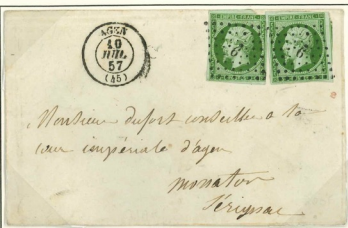 AGEN
10
JUIL
57
(45)
EMPIRE FRANC
EMPIRE FRANC
Monsieur dufort conseiller a la
cour impériale d'agen
monaton
Sérignac